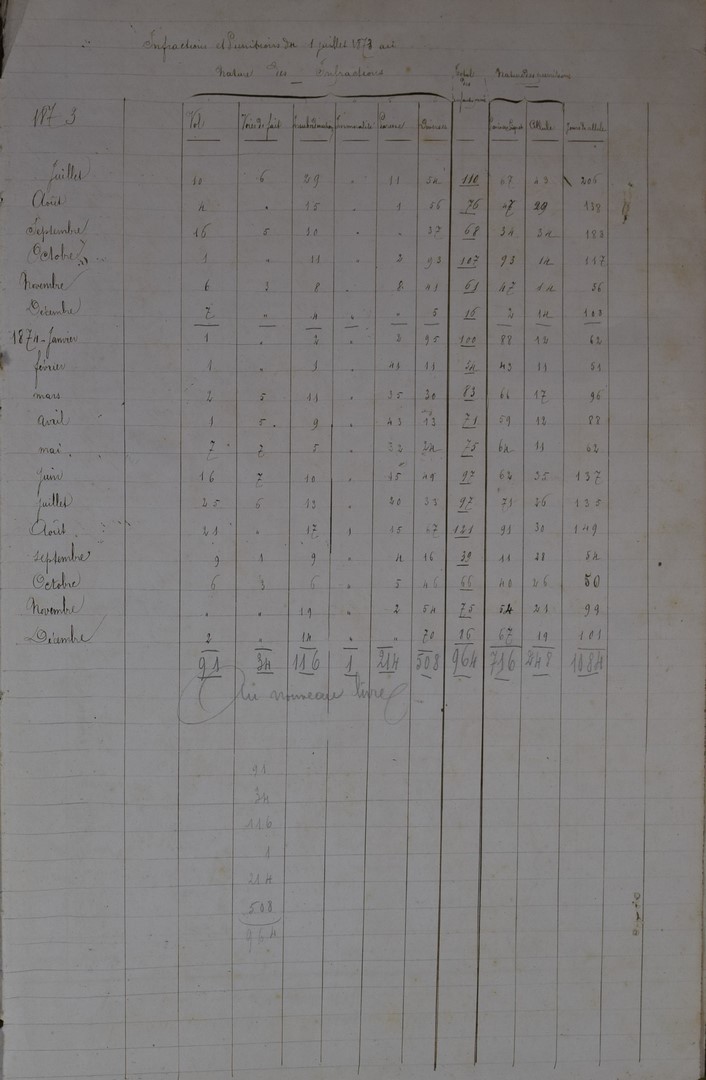 Infractions et Punitions du 1 juillet 1873 au
Nature Des Infractions Total des Nature des punitions
187 3 Vol Voies de fait Immoralité Paresse
Juillet 10 6 29 " 11 54 110 67 43 206
Août 4 " 15 " 1 56 76 47 29 138
Septembre 16 5 10 " " 37 68 34 34 183
Octobre 1 " 11 " 2 93 107 93 14 117
Novembre 6 8 " 8 61 47 14
Décembre 7 " 4 " " 5 16 2 14 103
1874 - Janvier 1 " 2 " 2 95 100 88 12 62
février 1 " 1 " 41 11 54 43 11 51
mars 2 5 11 " 35 30 83 66 17 96
avril 1 5 9 " 43 13 71 59 12 88
mai 7 7 5 " 32 24 75 64 11 62
juin 16 7 10 " 15 49 97 62 35 137
juillet 25 6 13 " 20 33 97 71 26 135
Août 21 " 17 1 35 47 121 91 30 149
Septembre 9 1 9 " 4 16 39 11 28 54
Octobre 6 3 6 " 5 46 66 40 26 50
Novembre " " 19 " 2 54 75 54 21 99
Décembre 2 " 14 " " 70 86 67 19 101
91 34 116 1 214 508 964 716 248 1084
nouveau livre
91
34
116
1
214
508
964